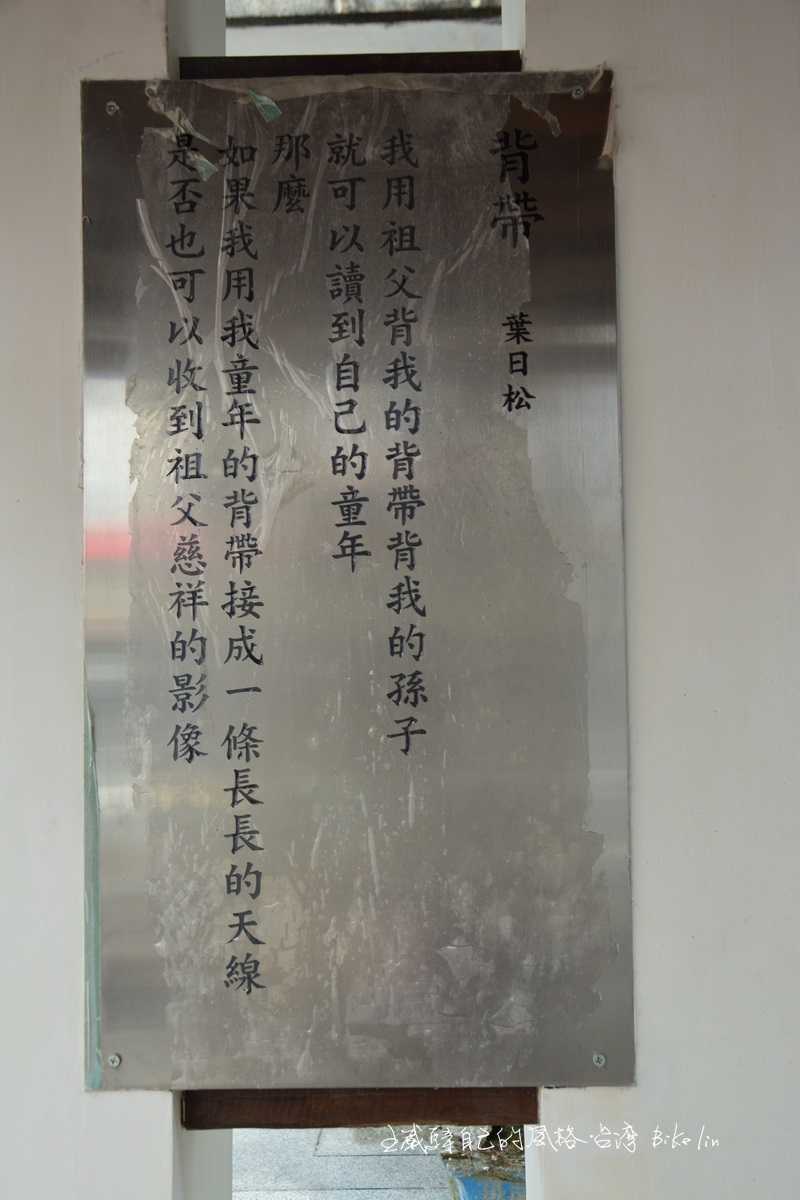 背帶
葉日松
我用祖父背我的背帶背我的孫子
就可以讀到自己的童年
那麼
如果我用我童年的背帶接成一條長長的天線
是否也可以收到祖父慈祥的影像
自己的風格.台灣 Bike lin